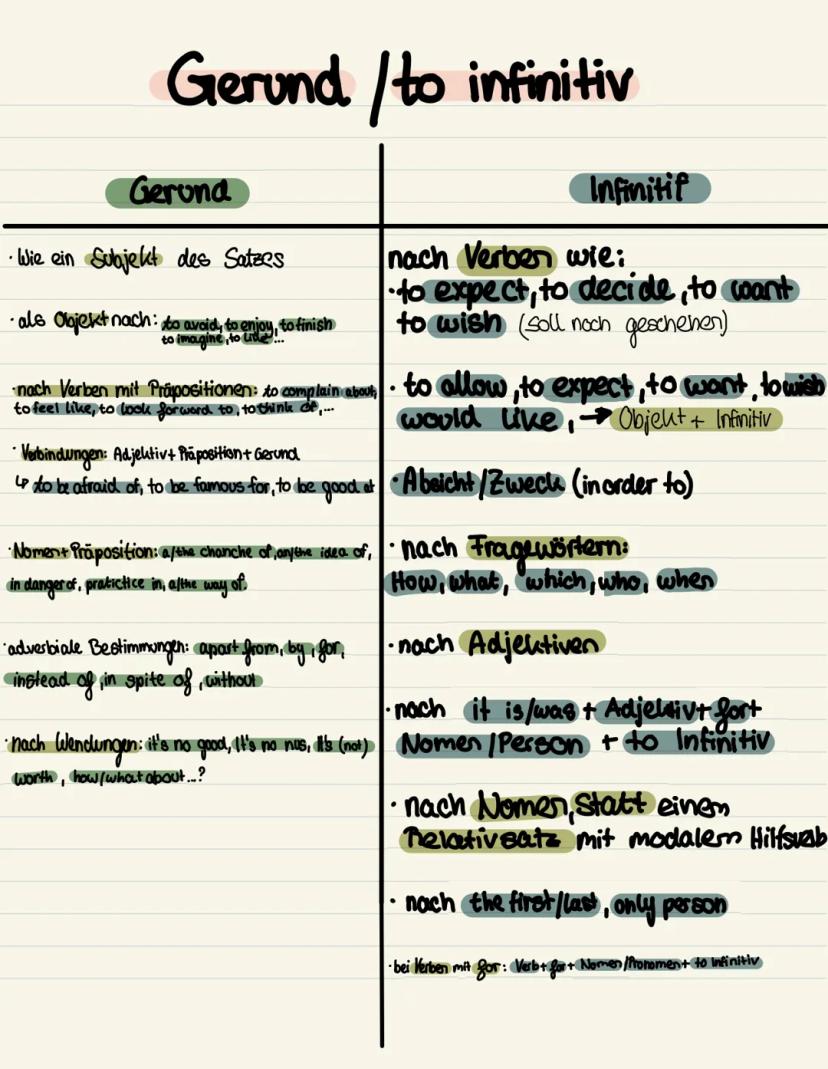 Gerund / to infinitiv
Gerund
· Wie ein Subjekt des Satzes
· als Objekt nach: to avoid, to enjoy, to finish
to imagine, to like...
· nach Verben mit Präpositionen: to complain about,
to feel like, to look forward to, to think of,...
· Verbindungen: Adjektiv + Präposition + Gerund
↳ to be afraid of, to be famous for, to be good at
· Nomen + Präposition: a/the chanche of, an/the idea of,
in danger of, pratictice in, a/the way of.
· adverbiale Bestimmungen: apart from, by, for,
instead of, in spite of, without
· nach Wendungen: it's no good, it's no nus, it's (not)
worth, how/what about...?
Infinitif
nach Verben wie:
· to expect, to decide, to want
to wish (soll noch geschehen)
· to allow, to expect, to want, to wish
would like, → Objekt + Infinitiv
· Absicht/Zweck (in order to)
· nach Fragewörtern:
How, what, which, who, when
· nach Adjektiven
· nach it is/was + Adjektiv + for +
Nomen/Person + to Infinitiv
· nach Nomen, statt einem
Relativsatz mit modalem Hilfsverb
· nach the first/last, only person
· bei Verben mit for: Verb + for + Nomen/Pronomen + to Infinitiv